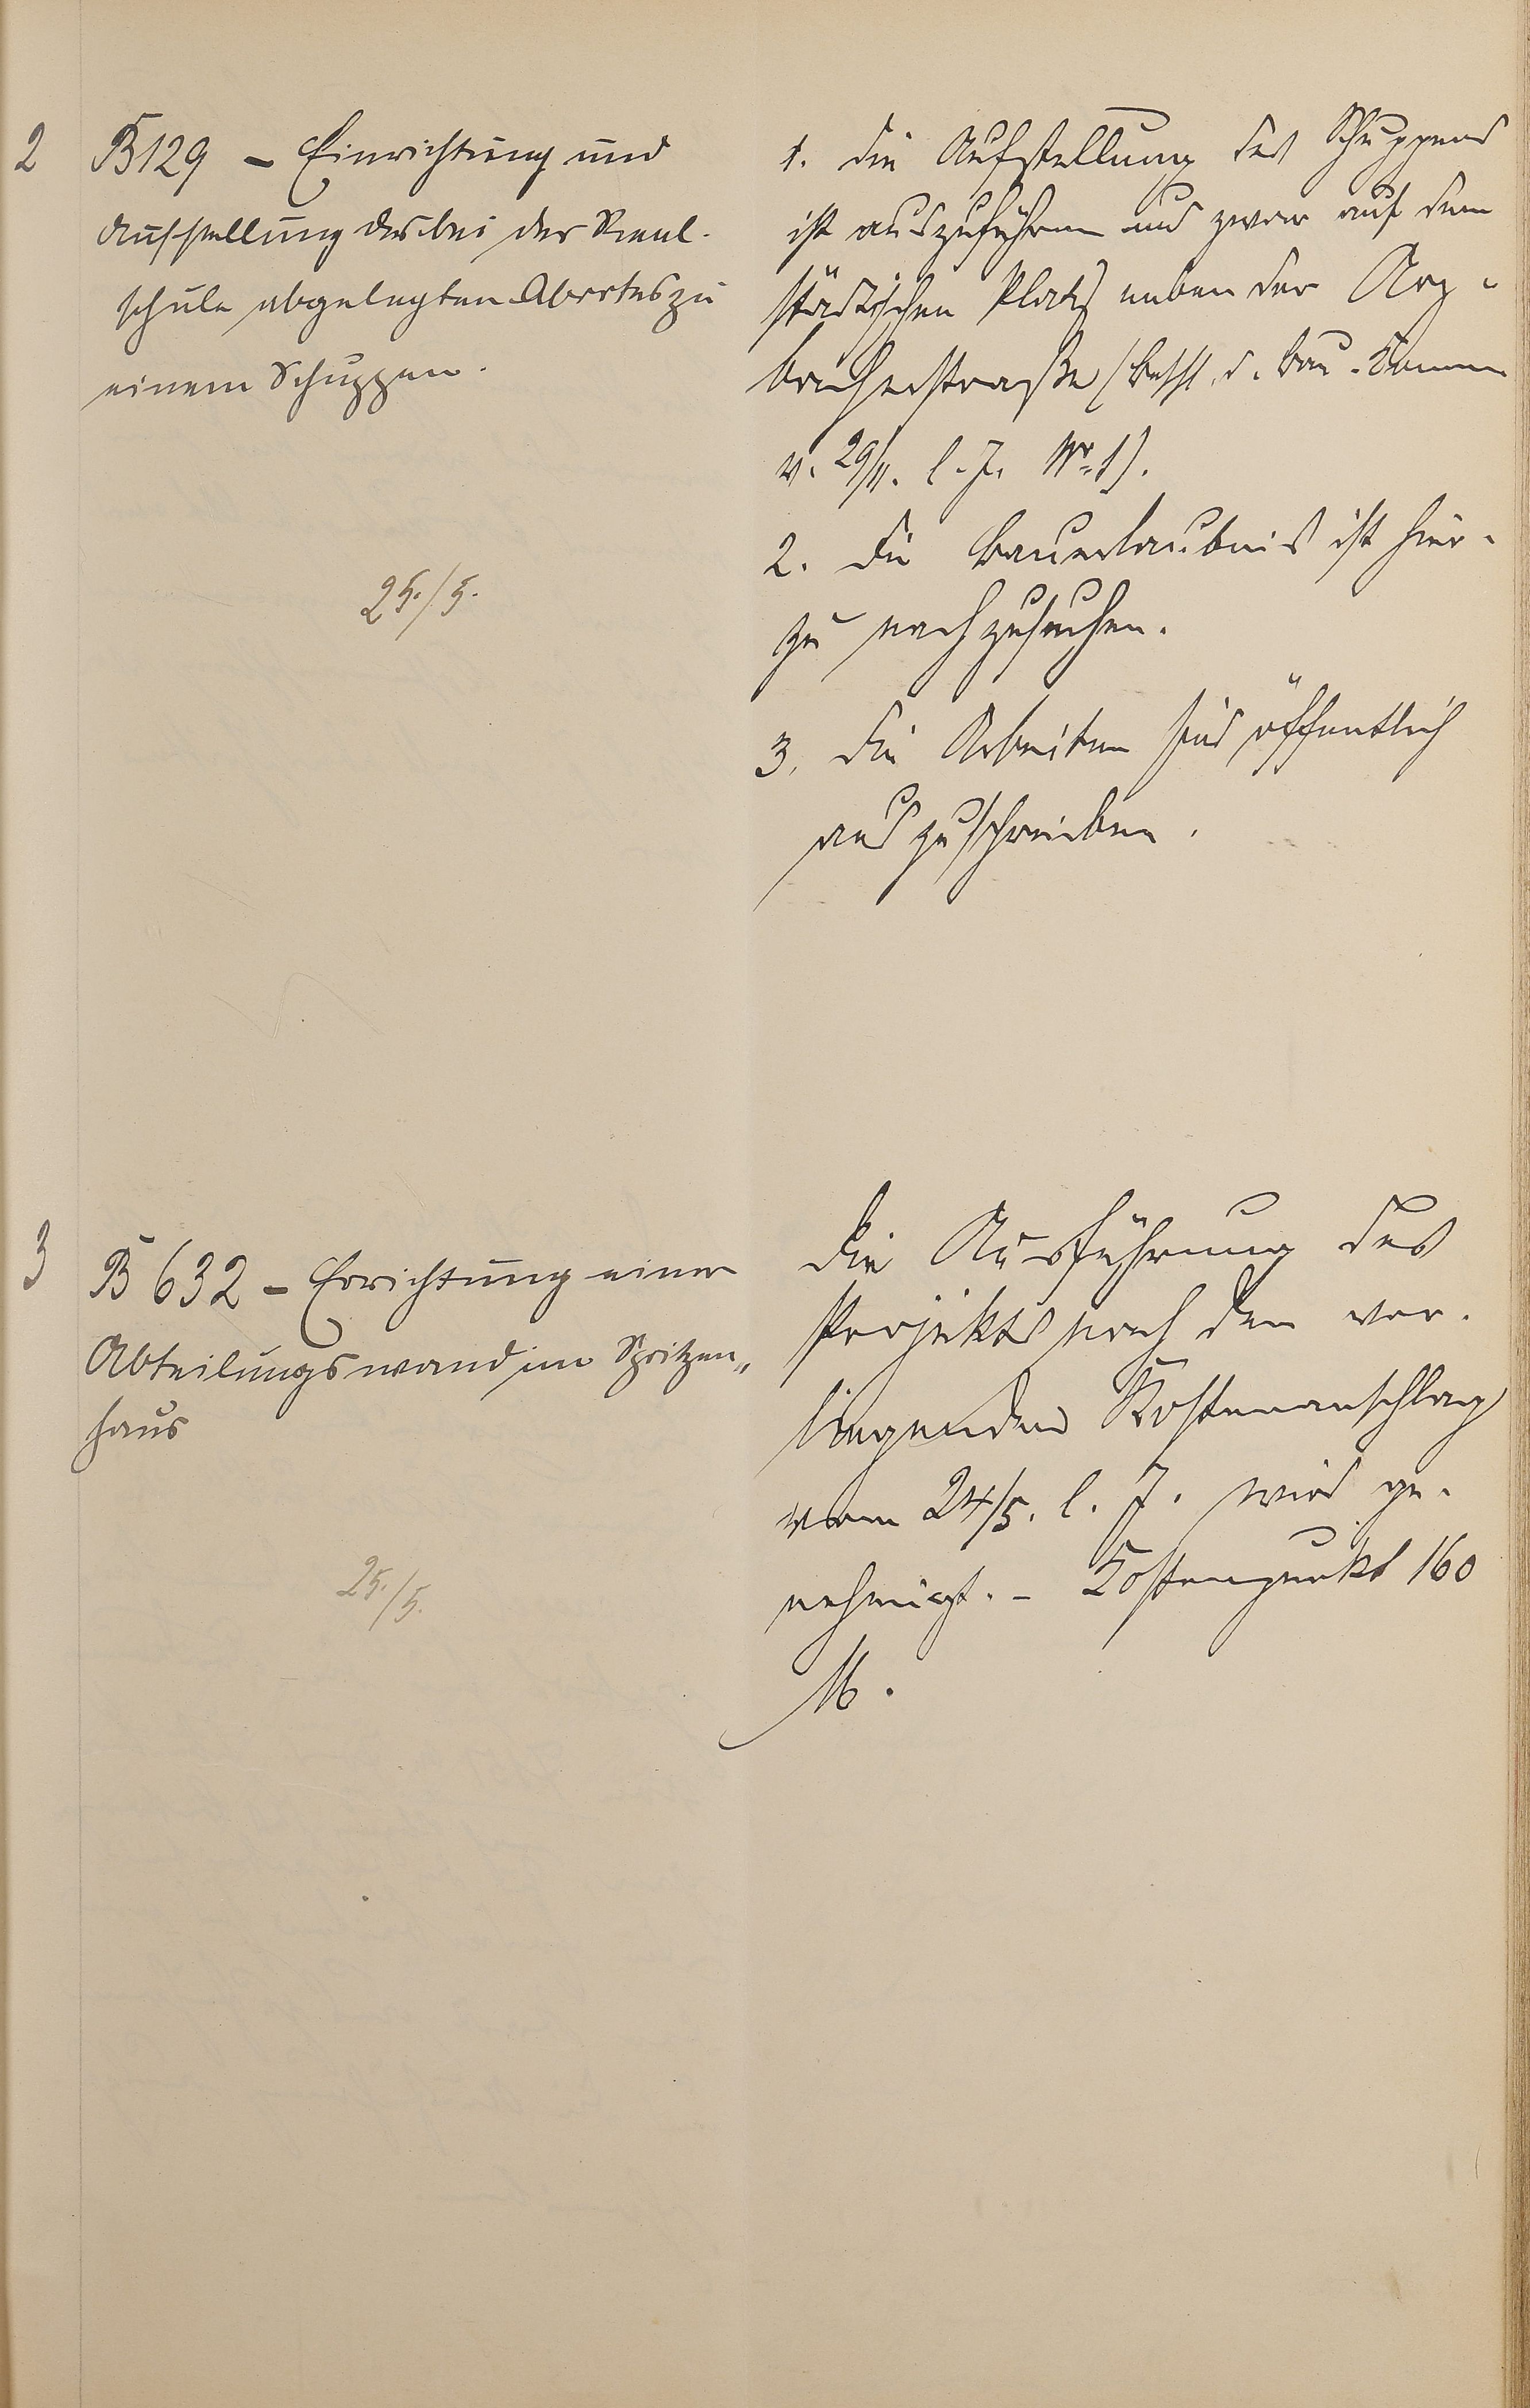 2
B 129 – Einrichtung und
Aufstellung des bei der Real-
schule abgelegten Abortes zu
einem Schuppen.
25./5.
1. Die Aufstellung des Schuppens
ist auszuführen und zwar auf dem
städtischen Platz neben der Arz-
bacherstraße (Beschl. d. Bau-Komm
v. 29/11. l. J. Nr. 1).
2. Die Bauerlaubnis ist hier-
zu nachzusuchen.
3. Die Arbeiten sind öffentlich
auszuschreiben.
3
B 632 – Errichtung einer
Abteilungswand im Spritzen„
haus
25./5.
Die Ausführung des
Projekts nach den vor-
liegenden Kostenanschlag
vom 24/5. l. J. wird ge-
nehmigt. – Kostenpunkt 160
M.